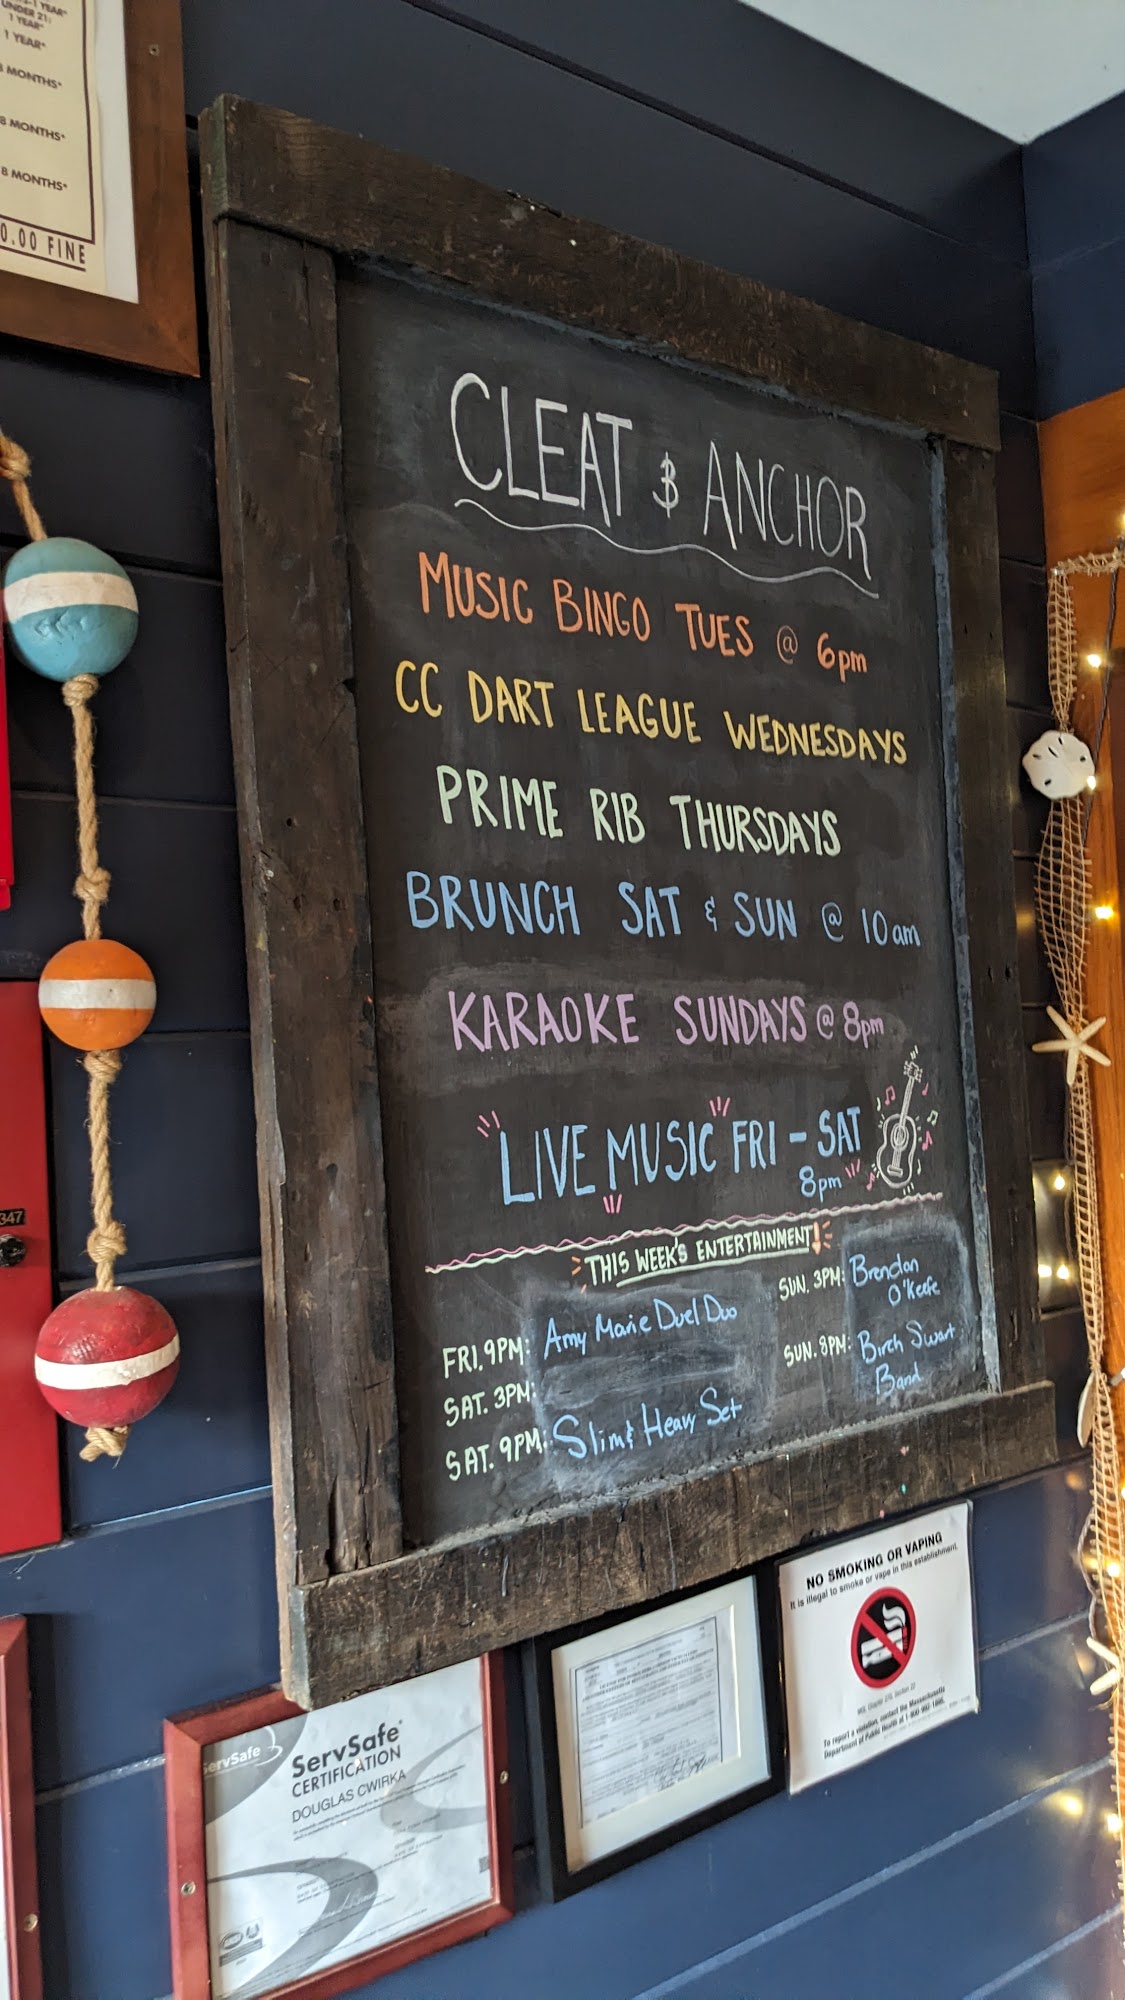 UNDER 21:
1 YEAR*
1 YEAR*
8 MONTHS*
8 MONTHS*
0.00 FINE
CLEAT & ANCHOR
MUSIC BINGO TUES @ 6pm
CC DART LEAGUE WEDNESDAYS
PRIME RIB THURSDAYS
BRUNCH SAT & SUN @ 10am
KARAOKE SUNDAYS @ 8pm
LIVE MUSIC FRI - SAT
8pm
THIS WEEK'S ENTERTAINMENT!
FRI. 9PM: Amy Marie Duel Duo
SAT. 3PM:
SAT. 9PM: Slim & Heavy Set
SUN. 3PM: Brendan
O'Keefe
SUN. 8PM: Birch Swart
Band
347
ServSafe
ServSafe
CERTIFICATION
DOUGLAS CWIRKA
NO SMOKING OR VAPING
It is illegal to smoke or vape in this establishment.
To report a violation, contact the Massachusetts
Department of Public Health at 1-800-992-1895.